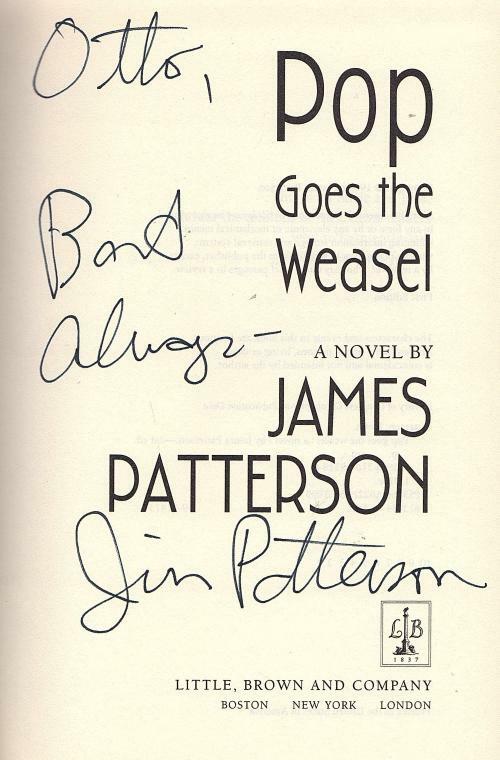 Otto,
Pop
Goes the
Weasel
Best
Always—
A NOVEL BY
JAMES
PATTERSON
Jim Patterson
L B
1837
LITTLE, BROWN AND COMPANY
BOSTON NEW YORK LONDON